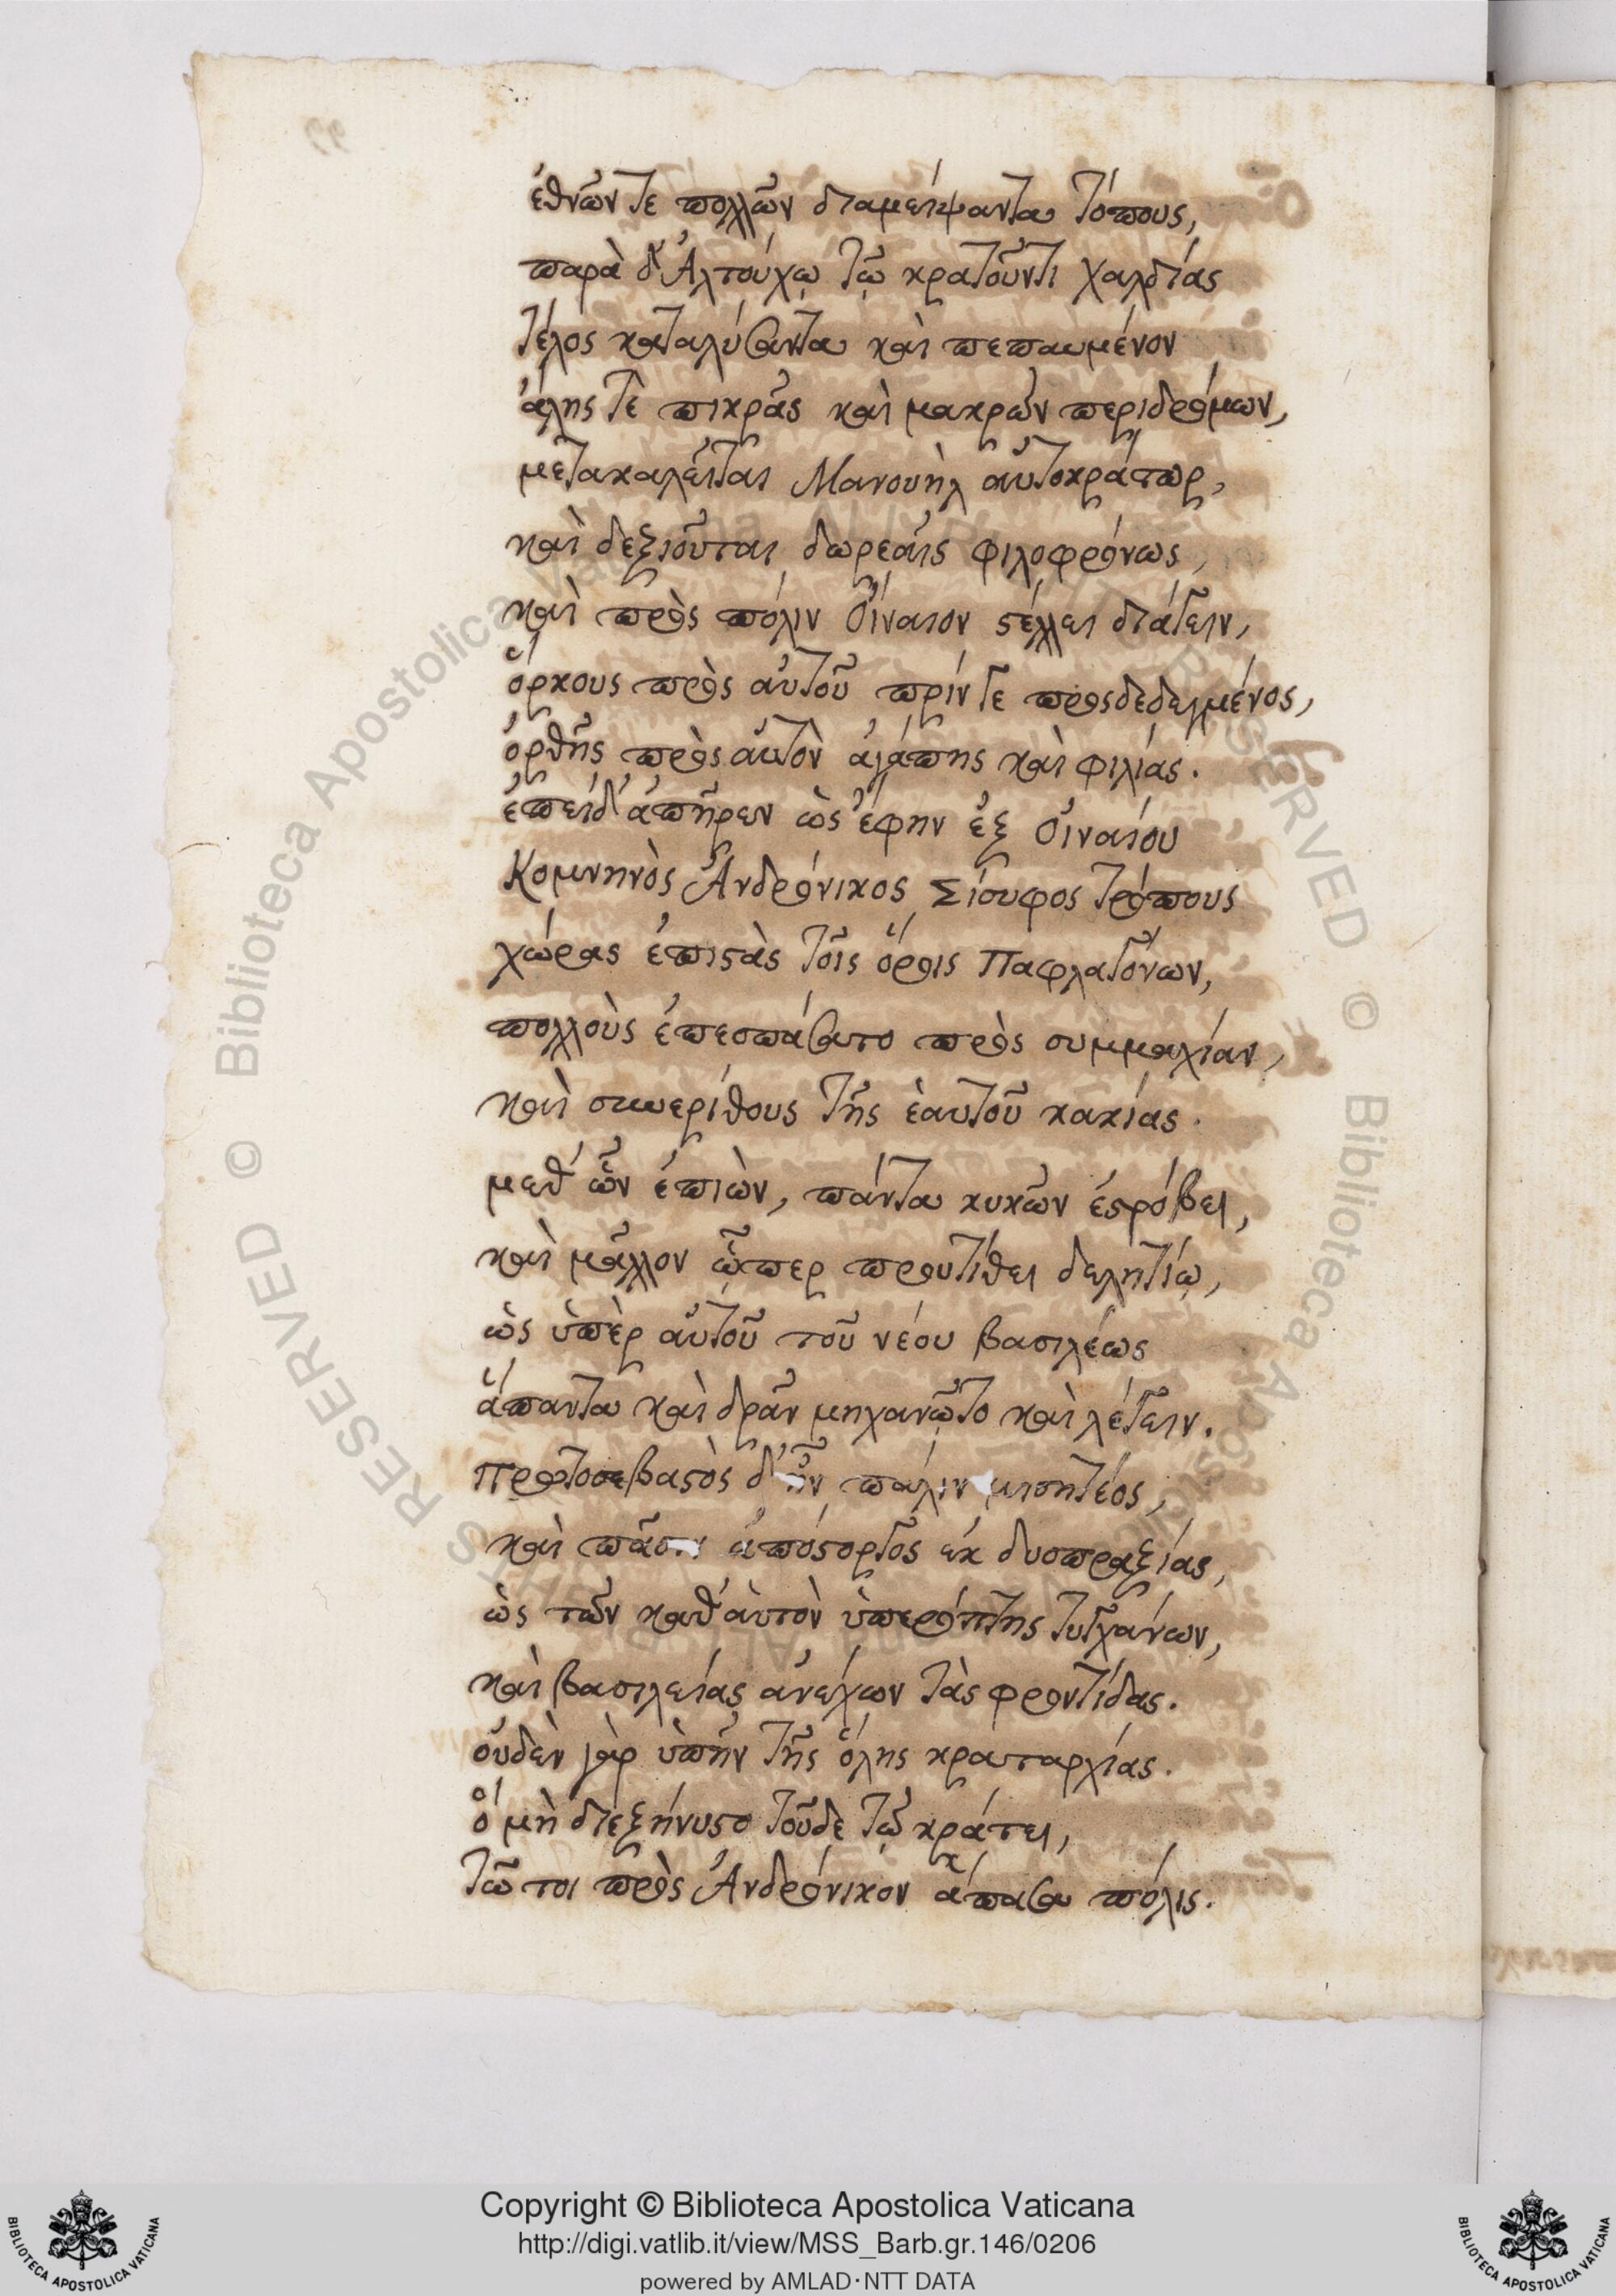 ἐθνῶν τε πολλῶν διαμείψαντα τόπους,
παρὰ δ' Ἀλτούχῳ τῷ κρατοῦντι Χαλδίας
τέλος καταλύσαντα καὶ πεπαυμένον
ἄλης τὲ πικρᾶς καὶ μακρῶν περιδρόμων,
μετακαλεῖται Μανουὴλ αὐτοκράτωρ,
καὶ δεξιοῦται δωρεαῖς φιλοφρόνως,
καὶ πρὸς πόλιν Οἴναιον στέλλει διάγειν,
ὅρκους πρὸς αὐτοῦ πρίν γε προσδεδεγμένος,
ὀρθῆς πρὸς αὐτὸν ἀγάπης καὶ φιλίας.
ἐπεὶ δ' ἀπῆρεν ὡς ἔφην ἐξ Οἰναίου
Κομνηνὸς Ἀνδρόνικος Σίσυφος τρόπους
χώρας ἐπιστὰς τοῖς ὅροις Παφλαγόνων,
πολλοὺς ἐπεσπάσατο πρὸς συμμαχίαν,
καὶ συνερίθους τῆς ἑαυτοῦ κακίας.
μεθ' ὧν ἐπιὼν, πάντα κυκῶν ἐστρόβει,
καὶ μᾶλλον ᾧπερ προυτίθει δελητίῳ,
ὡς ὑπὲρ αὐτοῦ τοῦ νέου βασιλέως
ἅπαντα καὶ δρᾶν μηχανῷτο καὶ λέγειν.
Πρωτοσεβαστὸς δ' ἦν πάλιν μισητέος,
καὶ πᾶσιν ἀπόστοργος ἐκ δυσπραξίας,
ὡς τῶν καθ' αὑτὸν ὑπερόπτης τυγχάνων,
καὶ βασιλείας ἀνέχων τὰς φροντίδας.
οὐδὲν γὰρ ὑπῆν τῆς ὅλης κραταρχίας.
ὃ μὴ διεξήνυστο τοῦδε τῷ κράτει,
τῶ τοι πρὸς Ἀνδρόνικον ἅπασα πόλις.
Copyright © Biblioteca Apostolica Vaticana
http://digi.vatlib.it/view/MSS_Barb.gr.146/0206
powered by AMLAD·NTT DATA